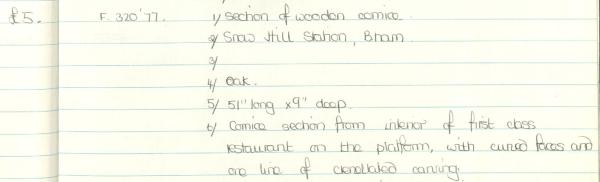 £5. F. 320'77. 1/ Section of wooden cornice.
2/ Snow Hill Station, B'ham
3/
4/ Oak.
5/ 51" long x 9" deep.
6/ Cornice section from interior of first class
restaurant on the platform, with curved faces and
one line of crenellated carving.